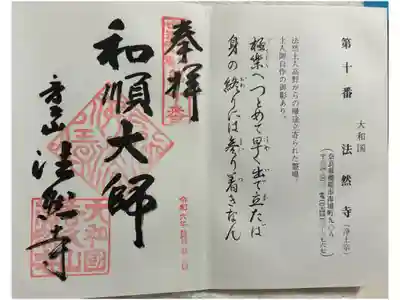 第十番
大和国
法然寺
（浄土宗）
奈良県橿原市南浦町九〇八
法然上人高野からの帰途立寄られた霊場。
上人御自作の御影あり。
極楽へつとめて早く出で立たば
身の終りには参り着きなん
奉拝
和順大師
香具山
法然寺